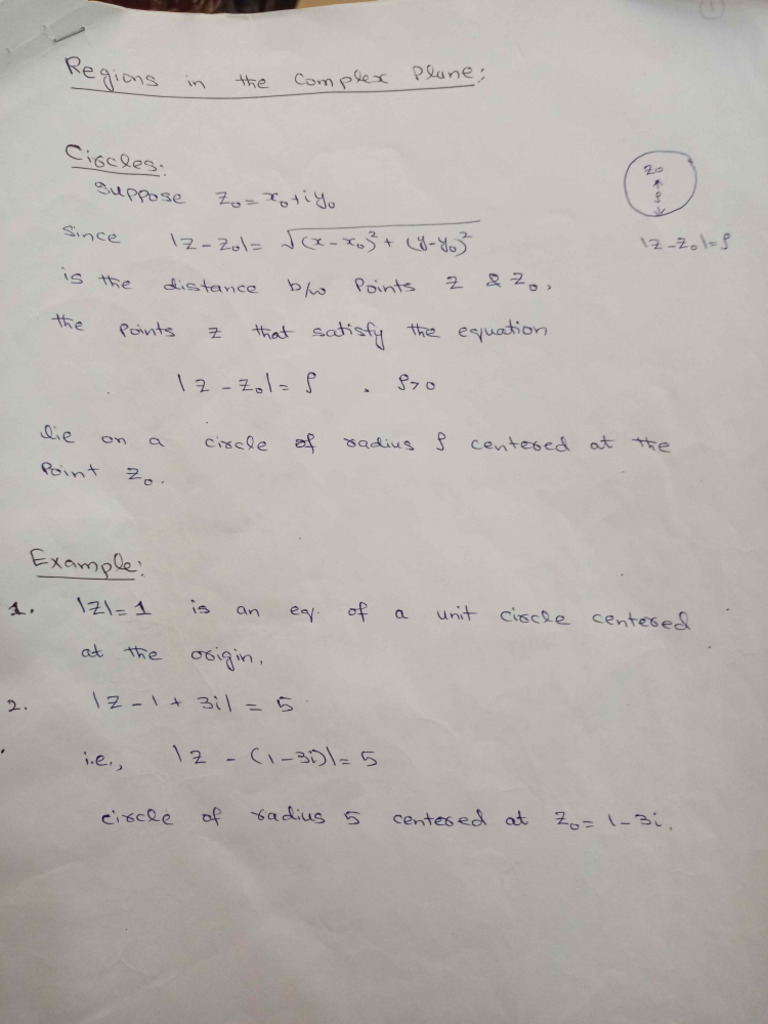 1
Regions in the Complex Plane:
Circles:
Suppose z₀ = x₀ + iy₀
z₀
ρ
Since |z - z₀| = √(x - x₀)² + (y - y₀)²
|z - z₀| = ρ
is the distance b/w Points z & z₀,
the points z that satisfy the equation
|z - z₀| = ρ , ρ > 0
lie on a circle of radius ρ centered at the
Point z₀.
Example:
1. |z| = 1 is an eq. of a unit circle centered
at the origin.
2. |z - 1 + 3i| = 5
i.e., |z - (1 - 3i)| = 5
circle of radius 5 centered at z₀ = 1 - 3i.